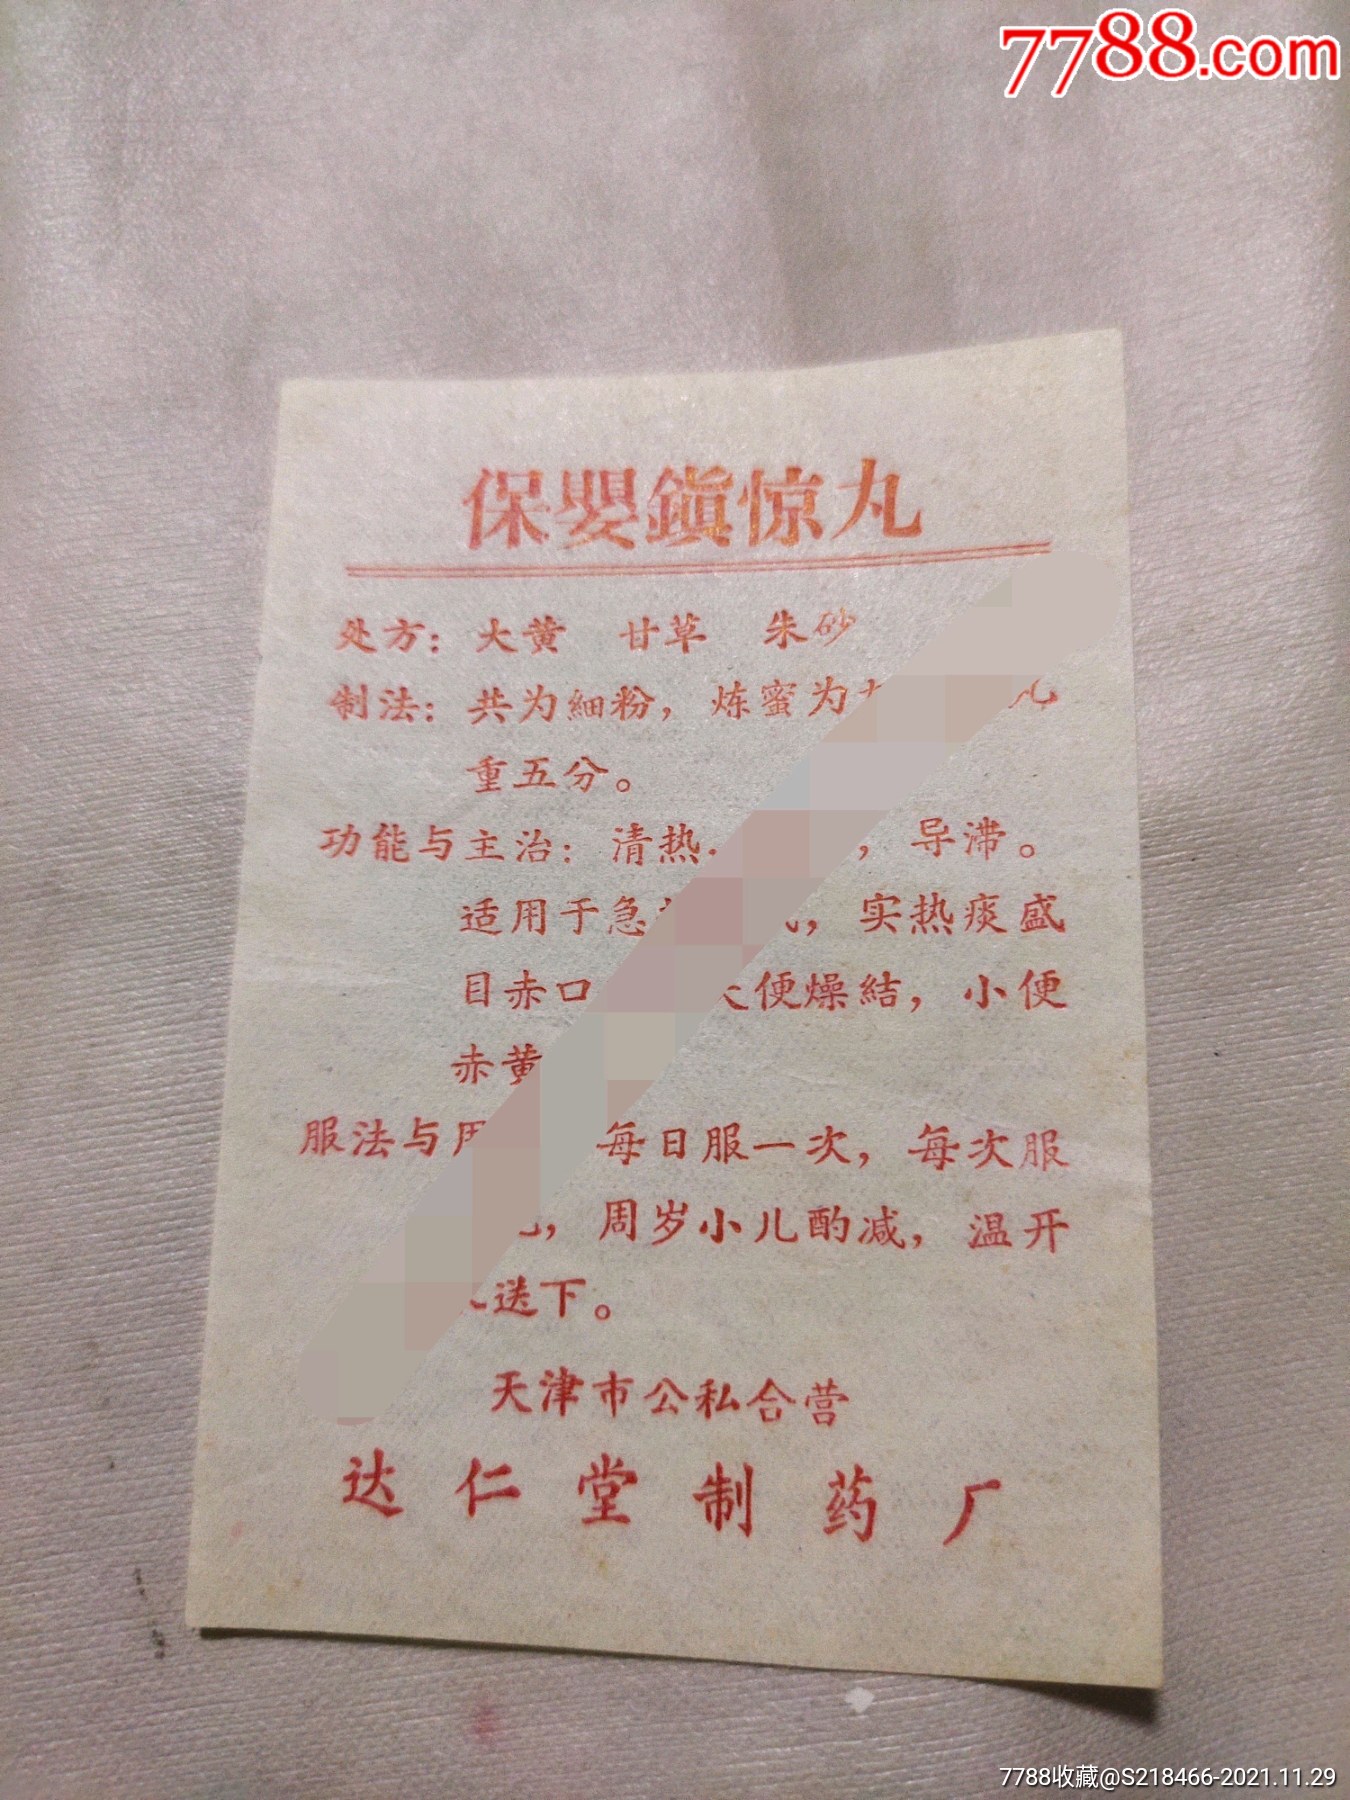 7788.com
保嬰鎭惊丸
处方：大黄 甘草 朱砂
制法：共为細粉，炼蜜为
重五分。
功能与主治：清热 ，导滞。
适用于急 ，实热痰盛
目赤口 便燥結，小便
赤黄
服法与 每日服一次，每次服
，周岁小儿酌减，温开
送下。
天津市公私合营
达仁堂制药厂
7788收藏@S218466-2021.11.29